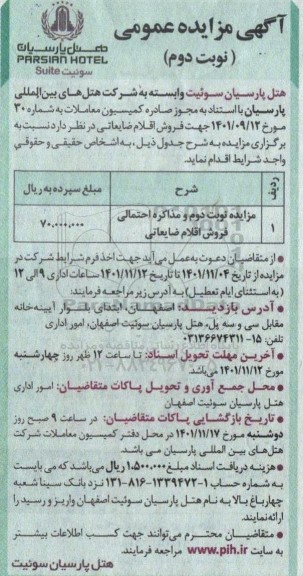 آگهی مزایده عمومی
(نوبت دوم)
هتل پارسیان
PARSIAN HOTEL
سوئیت Suite
هتل پارسیان سوئیت وابسته به شرکت هتل های بین المللی
پارسیان با استناد به مجوز صادره کمیسیون معاملات به شماره ۳۰
مورخ ۱۴۰۱/۰۹/۱۲ جهت فروش اقلام ضایعاتی در نظر دارد نسبت به
برگزاری مزایده به شرح جدول ذیل، به اشخاص حقیقی و حقوقی
واجد شرایط اقدام نماید.
ردیف شرح مبلغ سپرده به ریال
۱ مزایده نوبت دوم و مذاکره احتمالی فروش اقلام ضایعاتی ۷۰,۰۰۰,۰۰۰
از متقاضیان دعوت به عمل می آید جهت اخذ فرم شرایط شرکت در
مزایده از تاریخ ۱۴۰۱/۱۱/۰۴ تا تاریخ ۱۴۰۱/۱۱/۱۲ ساعات اداری ۹ الی ۱۲
(به استثنای ایام تعطیل) به آدرس زیر مراجعه فرمایند.
آدرس بازدید: اصفهان، ابتدای بلوار آیینه خانه
مقابل سی و سه پل، هتل پارسیان سوئیت اصفهان، امور اداری
تلفن: ۱۵-۰۳۱۳۶۶۷۴۳۱۱
آخرین مهلت تحویل اسناد: تا ساعت ۱۲ ظهر روز چهارشنبه
مورخ ۱۴۰۱/۱۱/۱۲ می باشد
محل جمع آوری و تحویل پاکات متقاضیان: امور اداری
هتل پارسیان سوئیت اصفهان
تاریخ بازگشایی پاکات متقاضیان: در ساعت ۹ صبح روز
دوشنبه مورخ ۱۴۰۱/۱۱/۱۷ در محل دفتر کمیسیون معاملات شرکت
هتل های بین المللی پارسیان می باشد.
هزینه دریافت اسناد مبلغ ۱,۵۰۰,۰۰۰ ریال می باشد که می بایست
به شماره حساب ۱-۱۳۳۹۴۷۲-۸۱۶-۱۳۱ نزد بانک سینا شعبه
چهارباغ بالا به نام هتل پارسیان سوئیت اصفهان واریز و رسید را
ارائه نمایند.
متقاضیان محترم می توانند جهت کسب اطلاعات بیشتر
به سایت www.pih.ir مراجعه فرمایند.
هتل پارسیان سوئیت